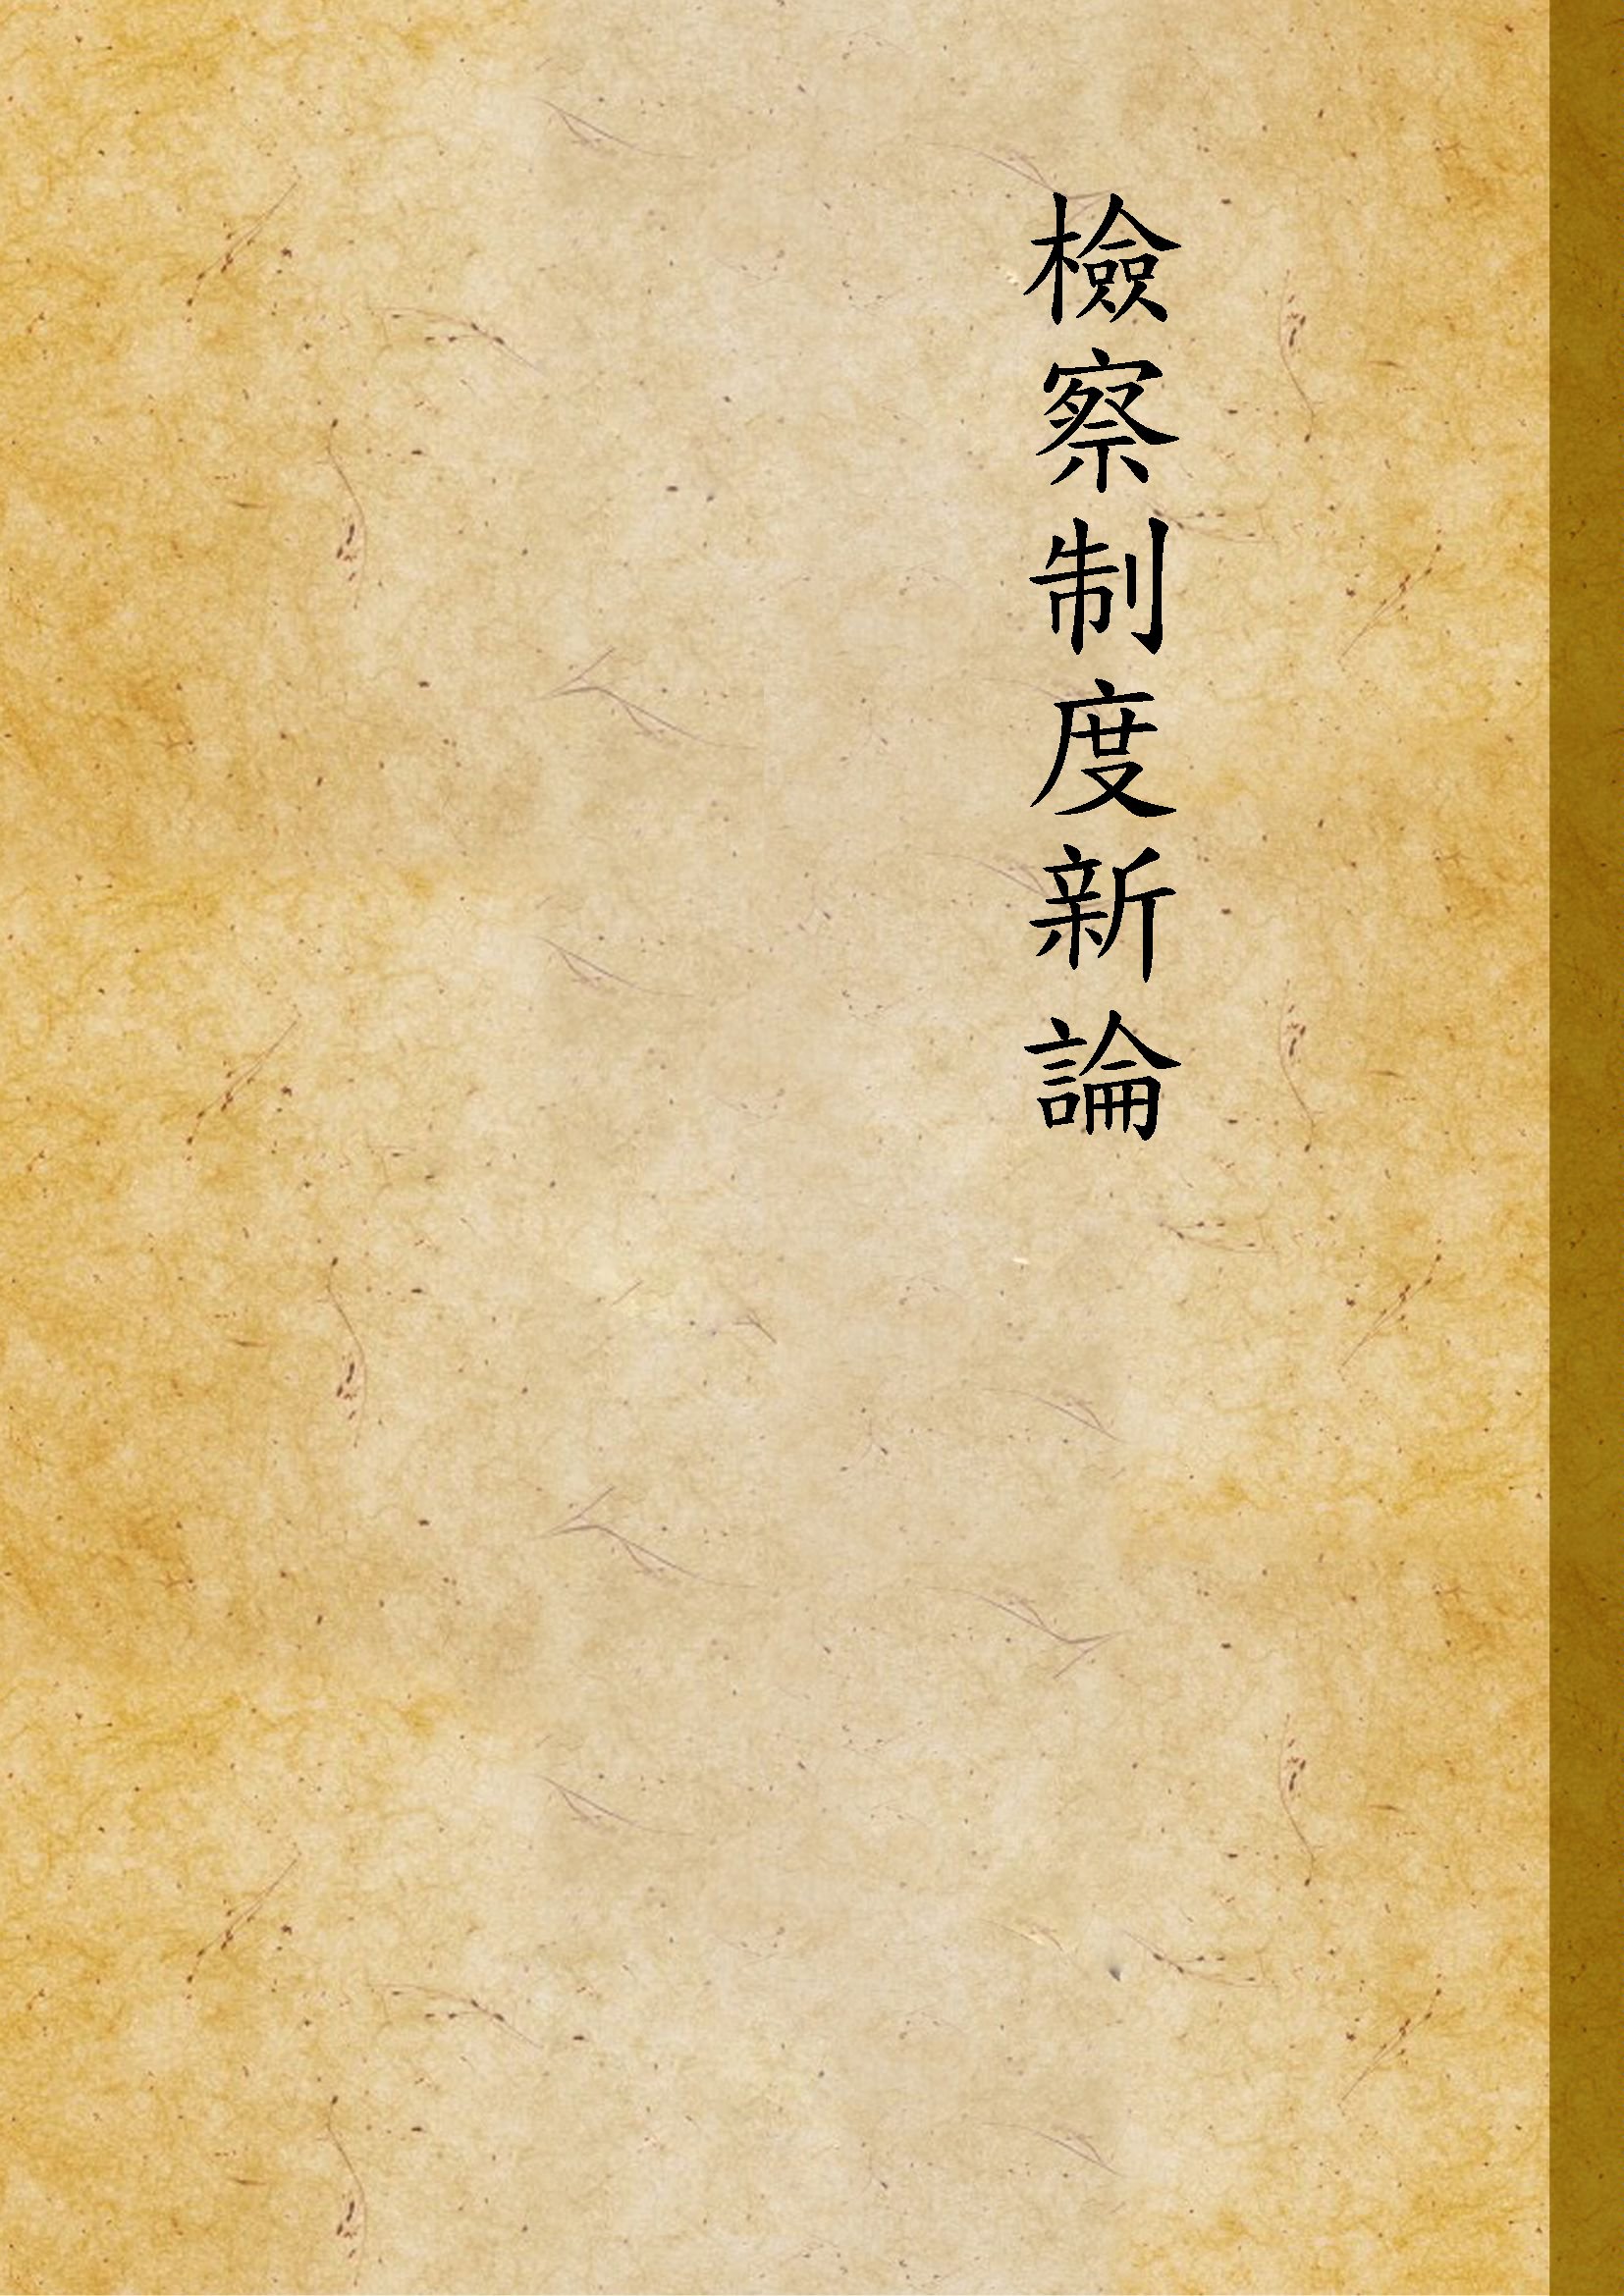 檢察制度新論